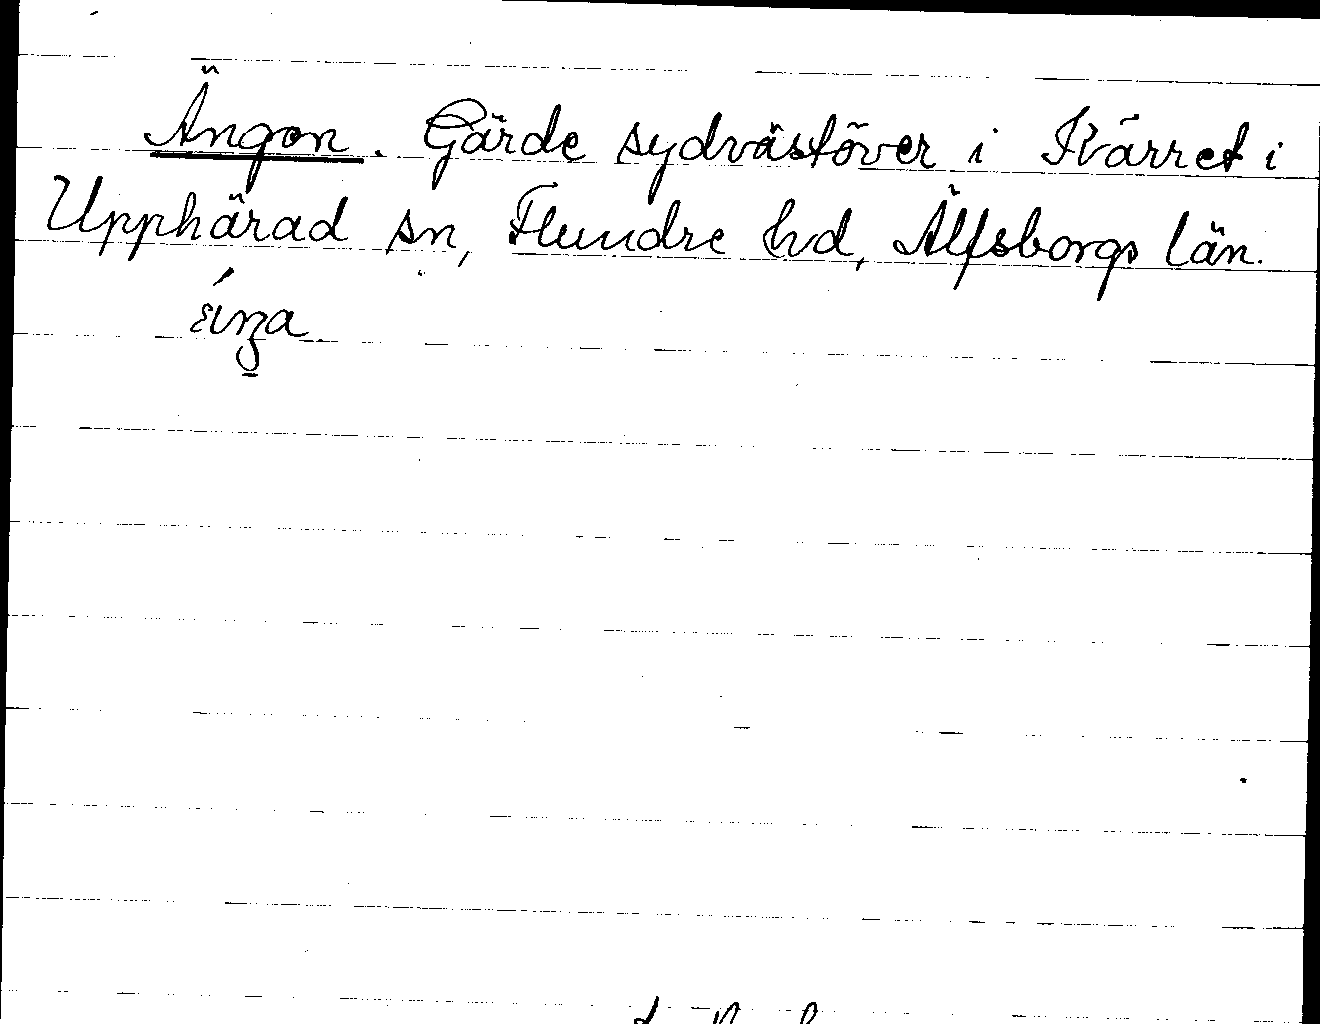 Ängon. Gärde sydvästöver i Kärret i
Upphärad sn, Flundre hd, Älfsborgs län.